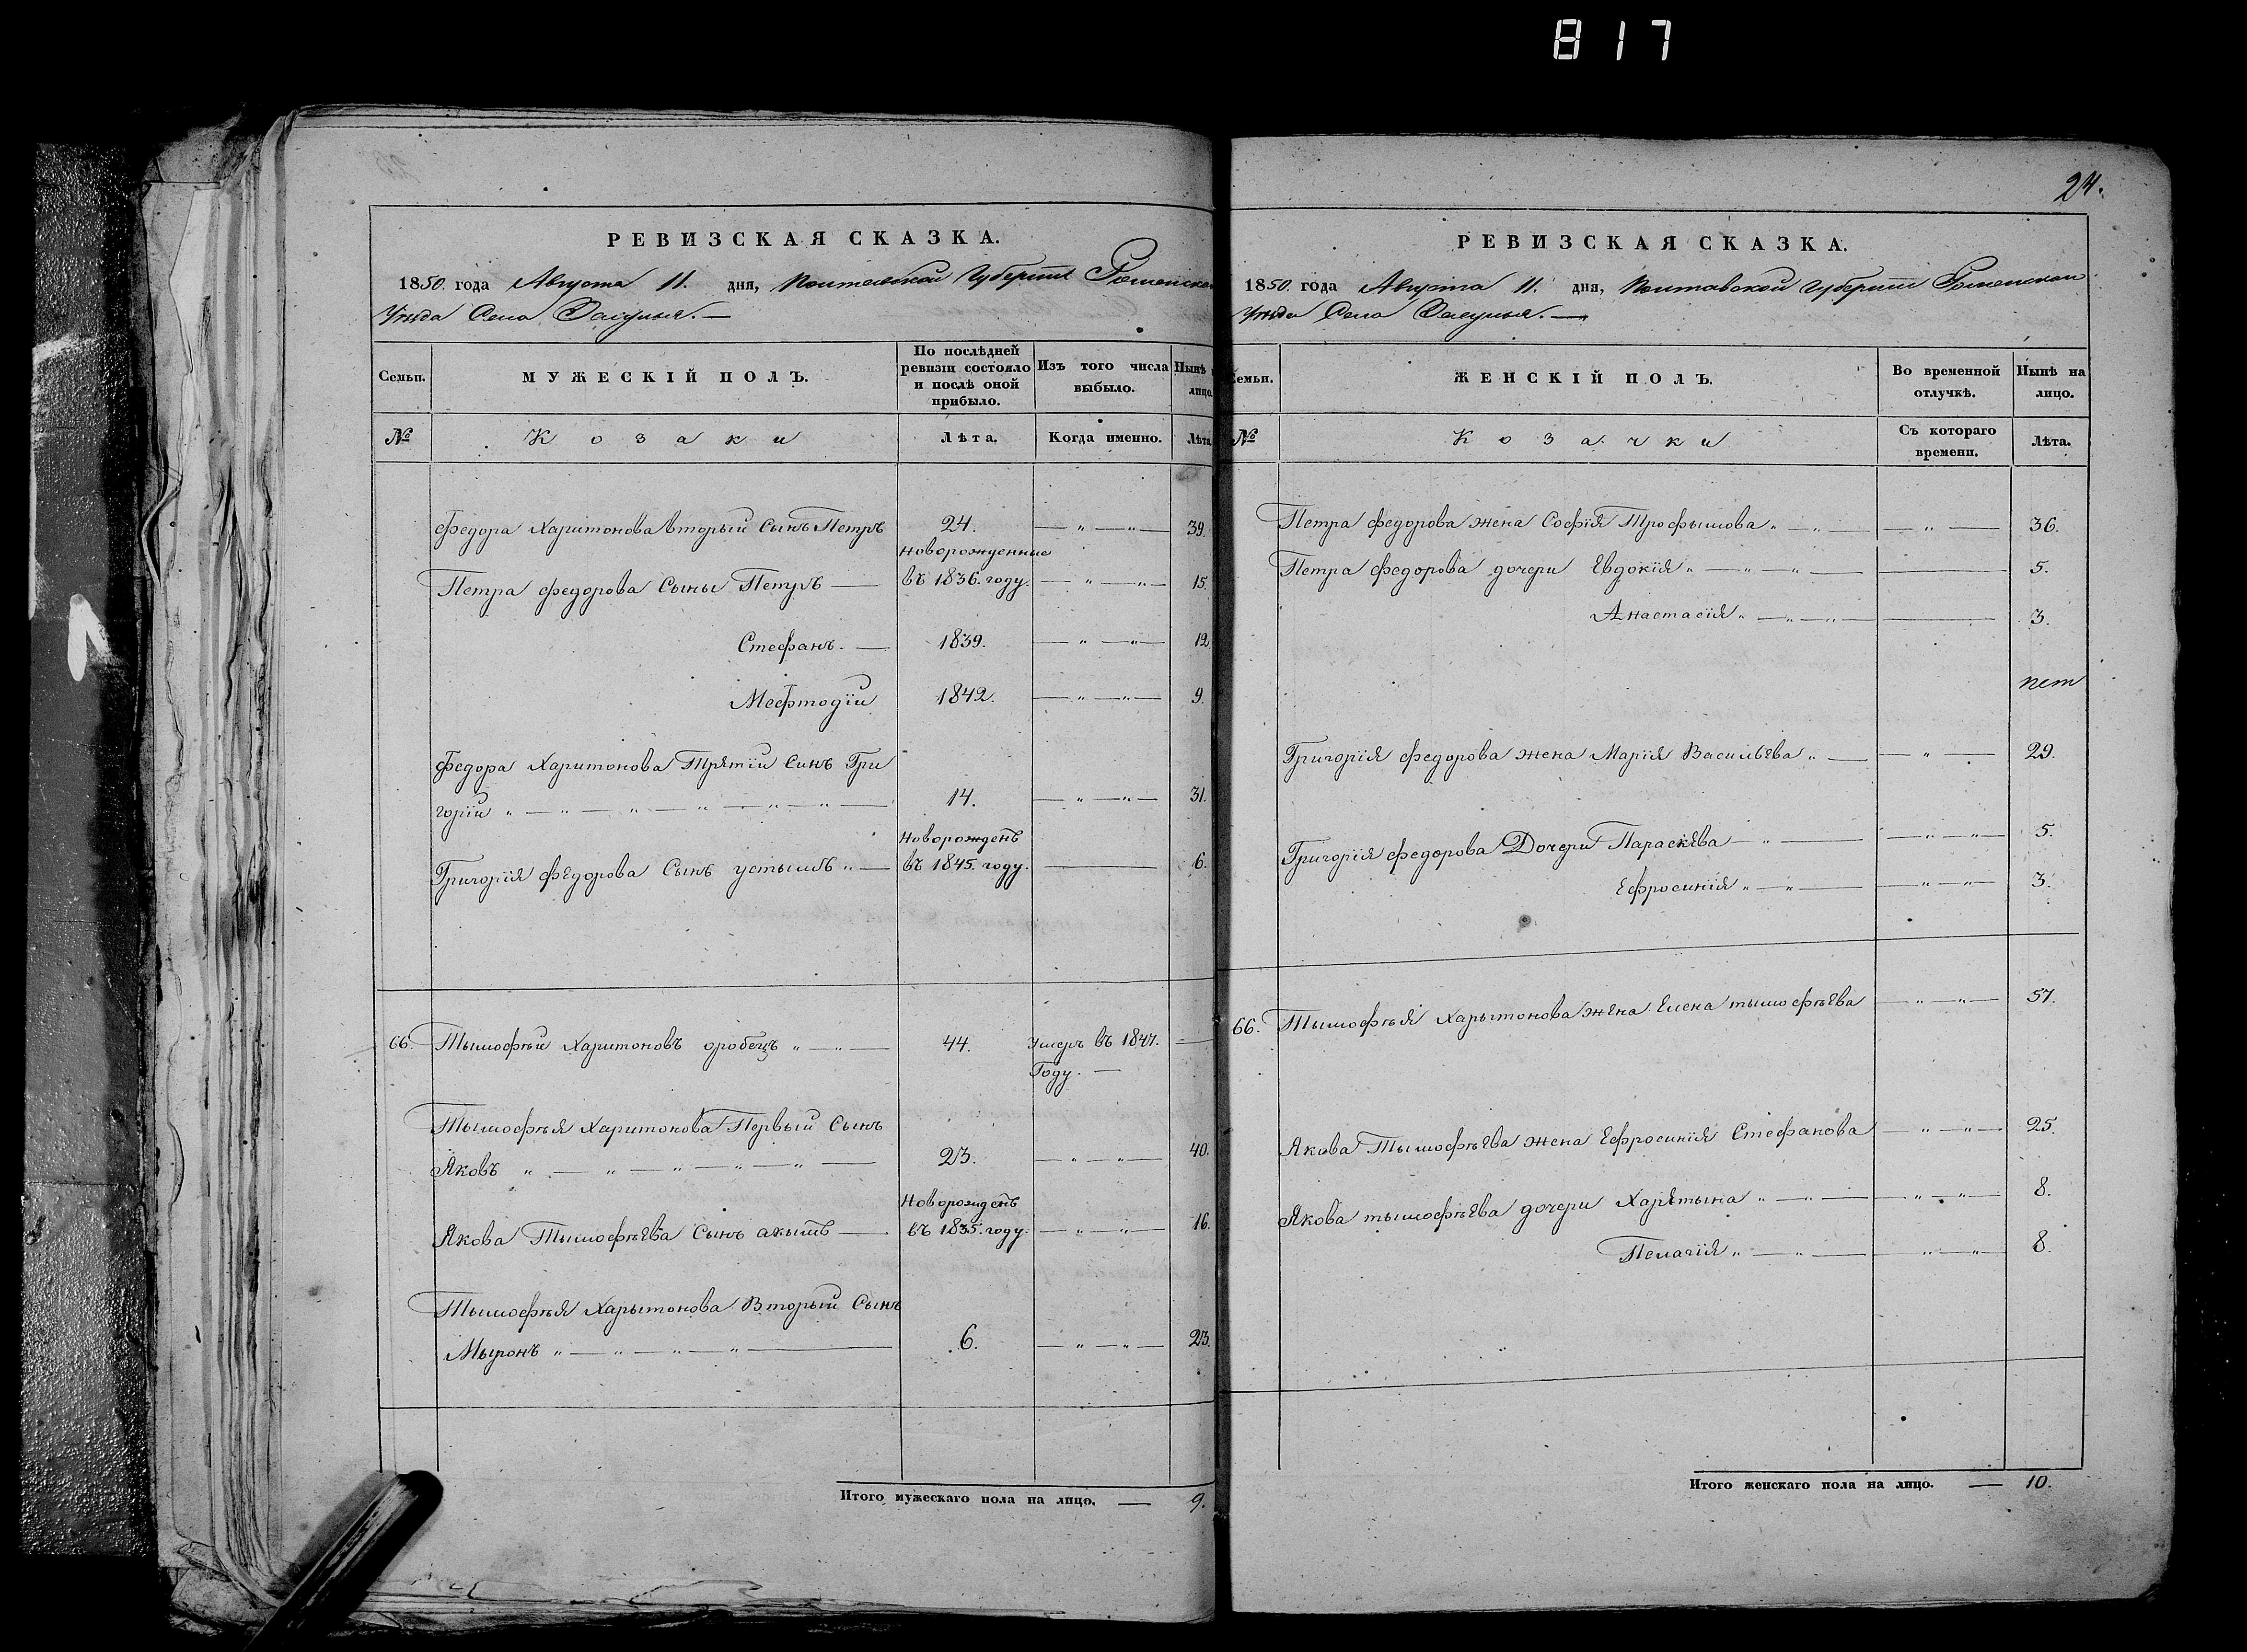 817
РЕВИЗСКАЯ СКАЗКА.
1850. года Августа 11. дня, Полтавской Губерніи Роменскаго
Уѣзда Села Засулья.—
Семьи. МУЖЕСКІЙ ПОЛЪ. По послѣдней ревизіи состояло и послѣ оной прибыло. Изъ того числа выбыло. Нынѣ на лицо.
№ Козаки Лѣта. Когда именно. Лѣта.
Федора Харитонова вторый Сынъ Петръ 24. — „ — „ — 39.
Новорожденные
Петра федорова Сыны Петръ — въ 1836. году. — „ — „ — 15.
Стефанъ. — 1839. — „ — „ — 12.
Мефтодiй 1842. — „ — „ — 9.
Федора Харитонова Трятiй Синъ Гри
горiй „ — „ — „ — „ — „ — „ — 14. — „ — „ — 31.
Новорожденъ
Григорiя федорова Сынъ устымъ „ — въ 1845. году. — 6.
66. Тымофѣй Харитоновъ оробецъ „ — „ — 44. Умеръ въ 1847. —
Году. —
Тымофѣя Харитонова Первый Сынъ
Яковъ „ — „ — „ — „ — „ — 23. — „ — „ — 40.
Новорожденъ
Якова Тымофѣева Сынъ акымъ — въ 1835. году. — „ — „ — 16.
Тымофѣя Харытонова Вторый Сынъ
Мыронъ „ — „ — „ — „ — 6. — „ — „ — 23.
Итого мужескаго пола на лицо. — 9.
24.
РЕВИЗСКАЯ СКАЗКА.
1850. года Августа 11. дня, Полтавской Губерніи Роменскаго
Уѣзда Села Засулья. —
Семьи. ЖЕНСКІЙ ПОЛЪ. Во временной отлучкѣ. Нынѣ на лицо.
№ Козачки Съ котораго времени. Лѣта.
Петра федорова жена Софiя Трофымова „ — „ — — „ — 36.
Петра федорова дочери Евдокiя „ — „ — „ — — 5.
Анастасiя „ — „ — „ — — 3.
нет
Григорiя федорова жена Марiя Васильева „ — — „ — 29.
Григорiя федорова Дочери Параскева — „ — — „ — „ — 5.
Ефросинiя „ — „ — — „ — „ — 3.
66. Тымофѣя Харытонова жена Елена тымофѣева — „ — „ — 57.
Якова Тымофѣева жена Ефросинiя Стефанова — „ — „ — 25.
Якова тымофѣева дочери Харятына „ — „ — — „ — „ — 8.
Пелагiя „ — „ — — „ — „ — 8.
Итого женскаго пола на лицо. — 10.